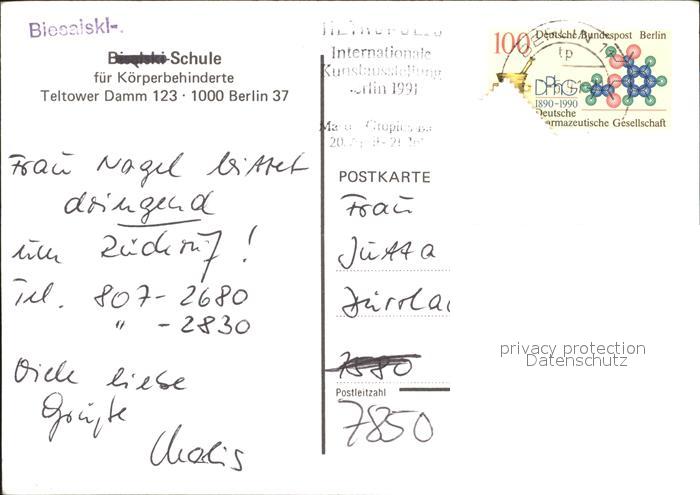 Biesalski-.
-Schule
für Körperbehinderte
Teltower Damm 123 · 1000 Berlin 37
Frau Nagel bittet
dringend
um Rückruf!
Tel. 807-2680
" -2830
Viele liebe
Grüße
METROPOLIS
Internationale
Kunstausstellung
Berlin 1991
100 Deutsche Bundespost Berlin
DPhG
1890-1990
Deutsche
Pharmazeutische Gesellschaft
POSTKARTE
Frau
Jutta
7880
Postleitzahl
7850
privacy protection
Datenschutz